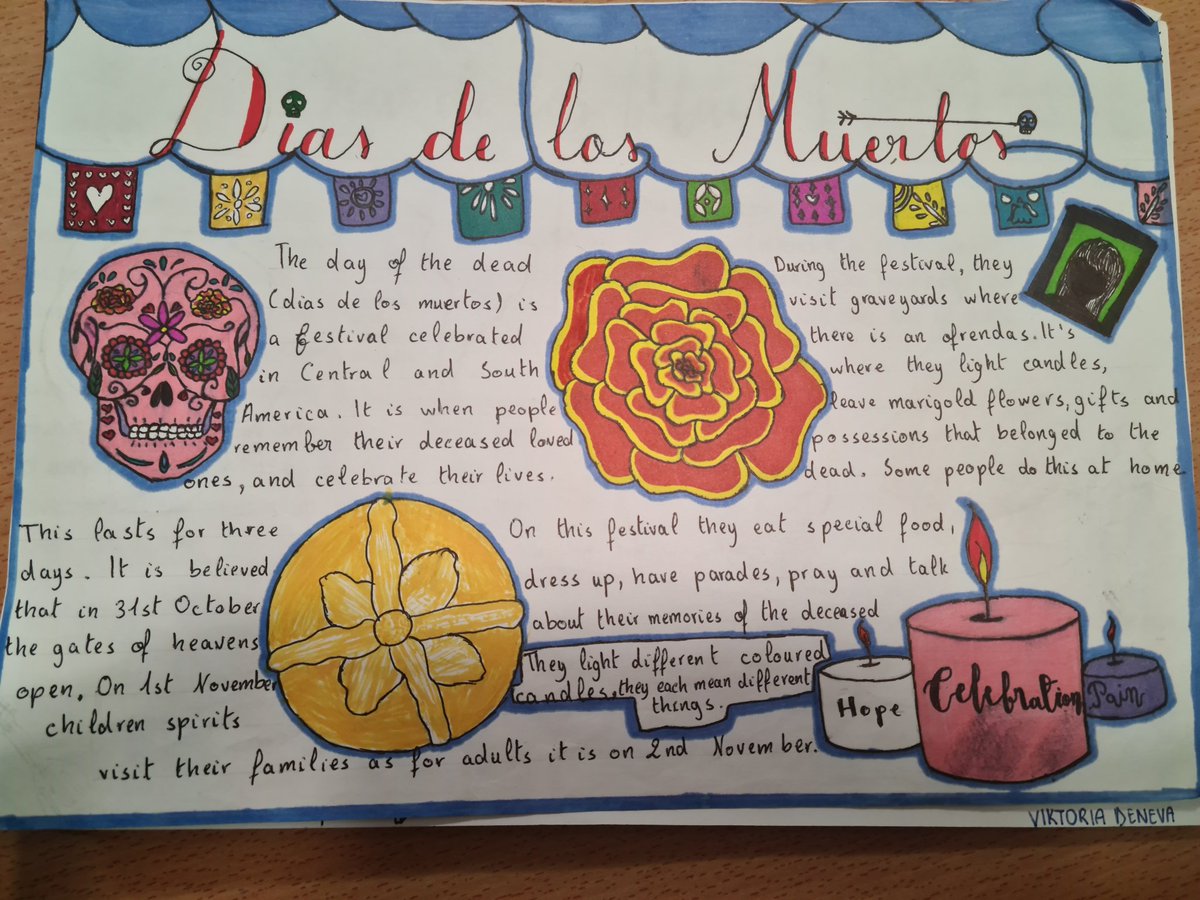 Dias de los Muertos
The day of the dead
(dias de los muertos) is
a festival celebrated
in Central and South
America. It is when people
remember their deceased loved
ones, and celebrate their lives.
During the festival, they
visit graveyards where
there is an ofrendas. It's
where they light candles,
leave marigold flowers, gifts and
possessions that belonged to the
dead. Some people do this at home
This lasts for three
days. It is believed
that in 31st October
the gates of heavens
open. On 1st November
children spirits
visit their families as for adults it is on 2nd November.
On this festival they eat special food,
dress up, have parades, pray and talk
about their memories of the deceased
They light different coloured
candles. they each mean different
things.
Hope
Celebration
Pain
VIKTORIA DENEVA